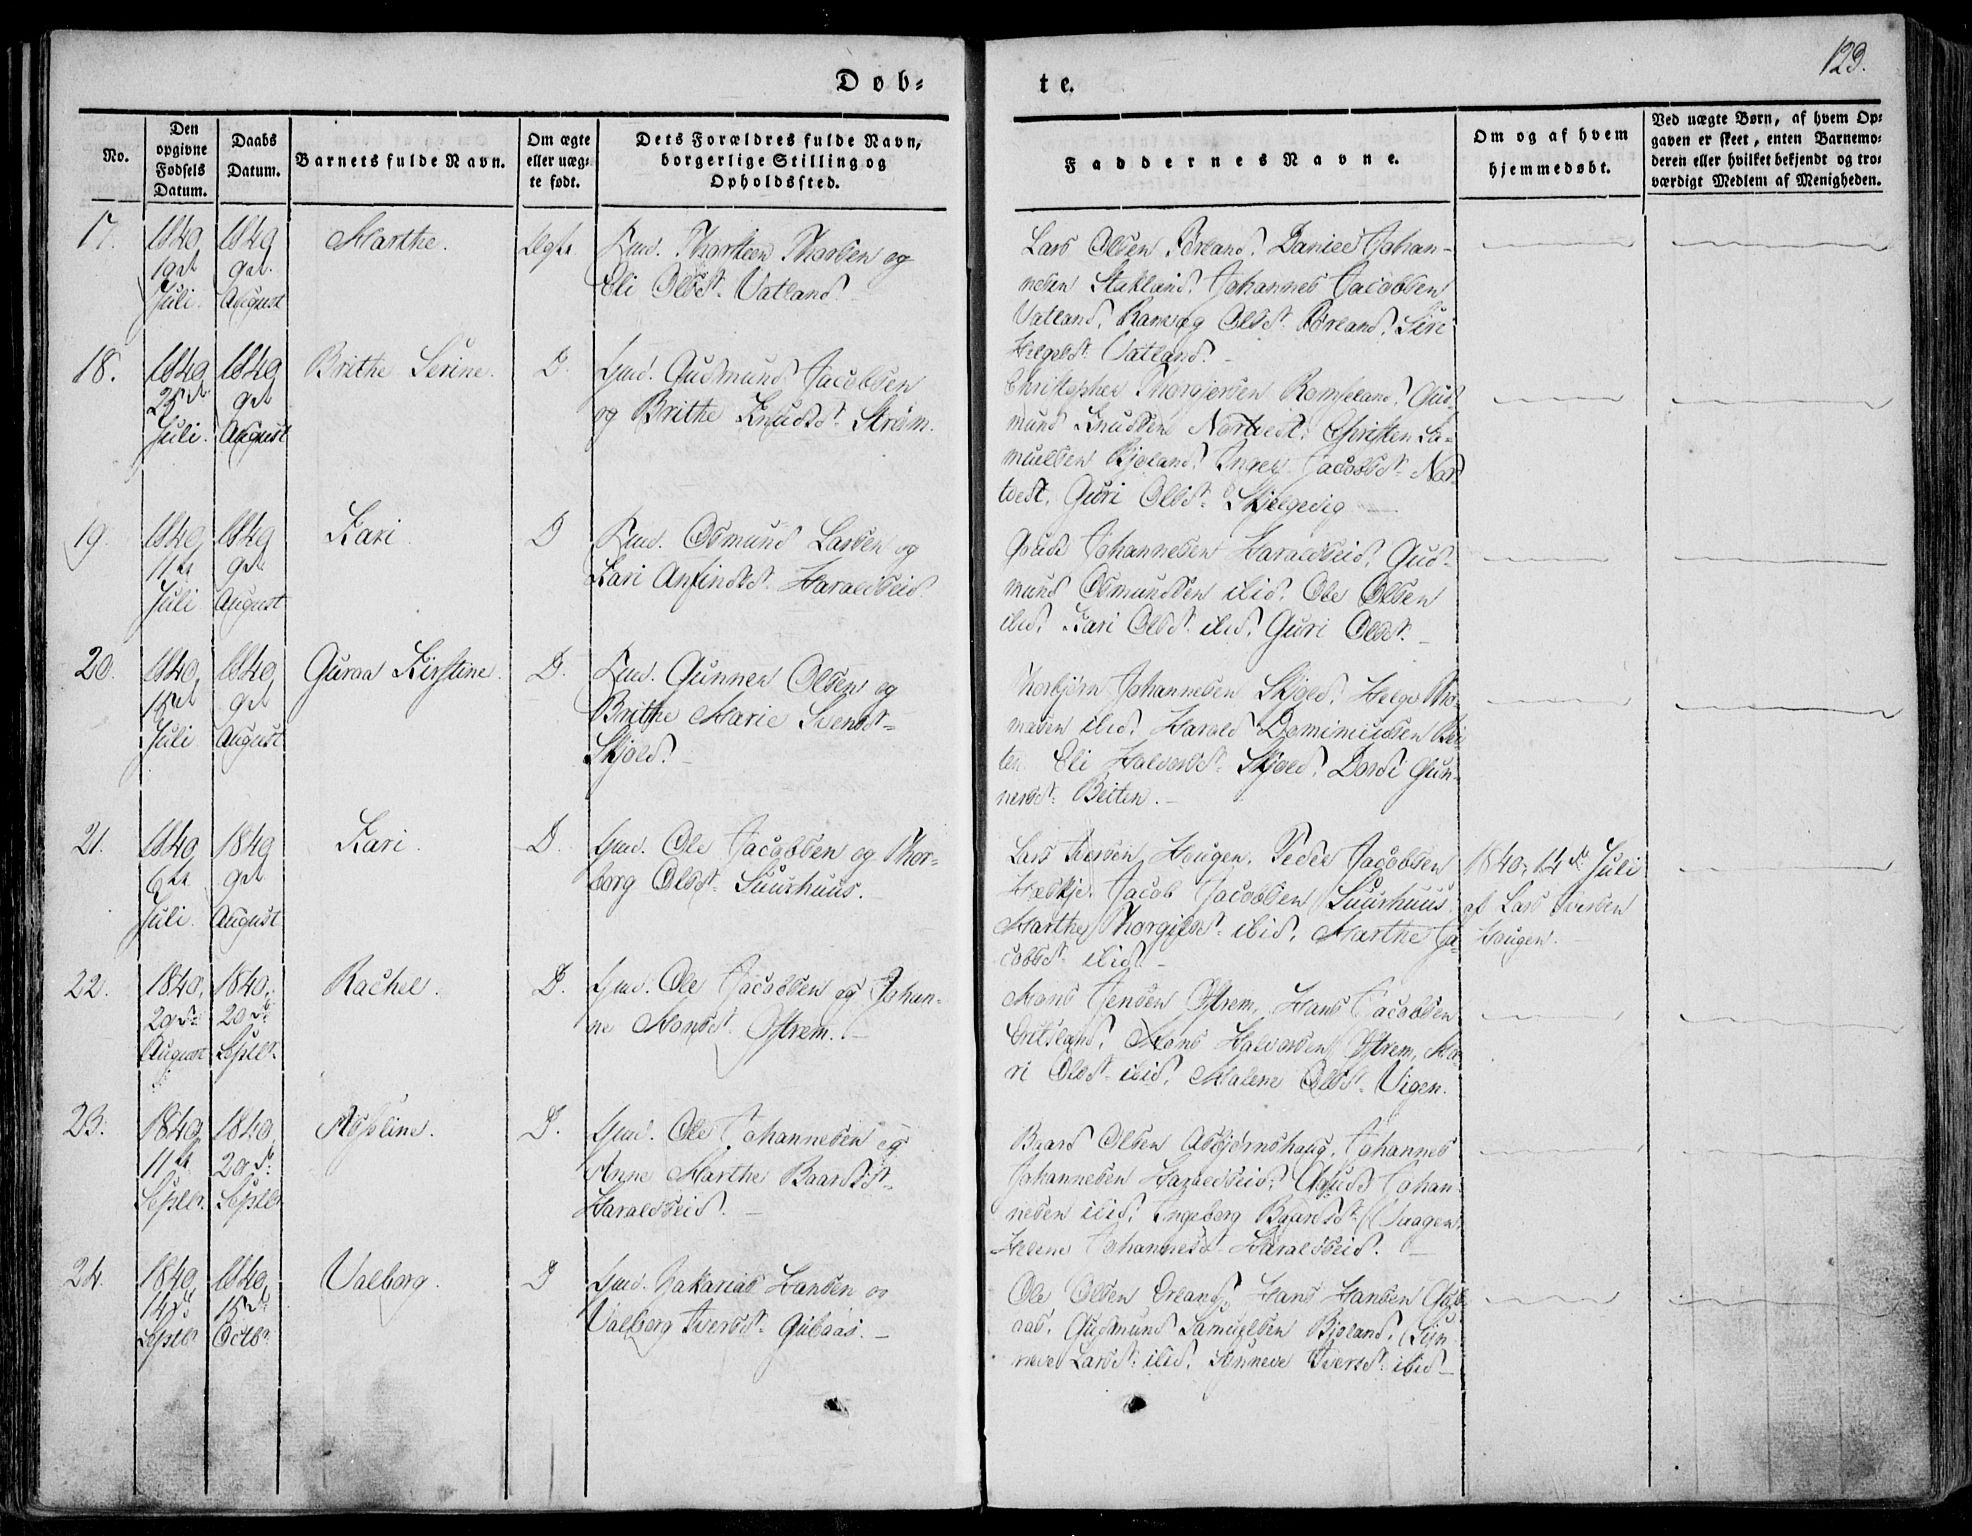 Døb-
te.
123.
No.
Den opgivne Fødsels Datum.
Daabs Datum.
Barnets fulde Navn.
Om ægte eller uægte født.
Dets Forældres fulde Navn, borgerlige Stilling og Opholdssted.
Faddernes Navne.
Om og af hvem hjemmedøbt.
Ved uægte Børn, af hvem Opgaven er skeet, enten Barnemoderen eller hvilket bekjendt og troværdigt Medlem af Menigheden.
17.
1840,
Juli.
1840
9de
August
Marthe.
Ægte
og
Eli Olsdr. Vatland.
Lars Olsen Daniel Johan-
nesen Johannes Jacobsen
Vatland, Olsdr. Siri
Helgesdr. Vatland.
18.
1840
25de
Juli.
1840
9de
August
Brithe Serine.
D.
Gmd. Gudmund Jacobsen
og Brithe Knudsdr. Strøm.
Christopher Thorgjersen Romseland, Gud-
mund Knudsen Nortvedt, Christen Sa-
muelsen Bjoland, Inger Jacobsdr. Nor-
tvedt, Guri Olsdr.
19.
1840
11te
Juli
1840
9de
August
Kari.
D
Osmund Larsen og
Kari Anfindsdr. Haraldseid.
Johannesen Haraldseid, Gud-
mund Osmundsen ibid, Ole Olsen
ibid, Kari Olsdr. ibid, Guri Olsdr.
20.
1840,
15de
Juli
1840
9de
August
Guroa Kirstine.
D.
Gunner Olsen og
Brithe Marie Svendsdr.
Skjold.
Thorbjørn Johannesen Skjold, Helge Tho-
masen ibid, Harald Bei-
ten Eli Halvorsdr. Skjold, Dordi Gun-
nersdr. Beiten.
21.
1840
6te
Juli.
1840
9de
August
Kari.
D.
Gmd. Ole Jacobsen og Thor-
borg Olsdr. Suurhuus.
Lars Iversen Hougen, Peder Jacobsen
Jacob Jacobsen Suurhuus,
Marthe Thorgilsdr. ibid, Marthe Ja-
cobsdr. ibid.
1840, 14de Juli
af Lars Iversen
Hougen.
22.
1840,
20de
August
1840,
20de
Septbr.
Rachel.
D.
Gmd. Ole Jacobsen og Johan-
ne Monsdr. Østrem.
Mons Jensen Østrem, Hans Jacobsen
Mons Halvorsen Østrem, Ma-
ri Olsdr. ibid, Malene Olsdr. Vigen.
23.
1840
11te
Septbr.
1840,
20de
Septbr
D.
Gmd. Ole Johannesen og
Anne Marthe Baardsdr.
Haraldseid.
Baard Olsen Asbjørnshaug, Johannes
Johannesen Haraldseid, Johan-
nesen ibid, Ingeborg Baardsdr.
Helene Johannesdr. Haraldseid.
24.
1840,
14de
Septbr
1840,
15de
Octbr.
Valborg.
D
Gmd. Zakarias Hansen og
Valborg Iversdr. Gubaas.
Ole Olsen Hans Hansen Gub-
aas, Gudmund Samuelsen Bjoland, Syn-
neve Larsdr. ibid, Synneve Iversdr. ibid